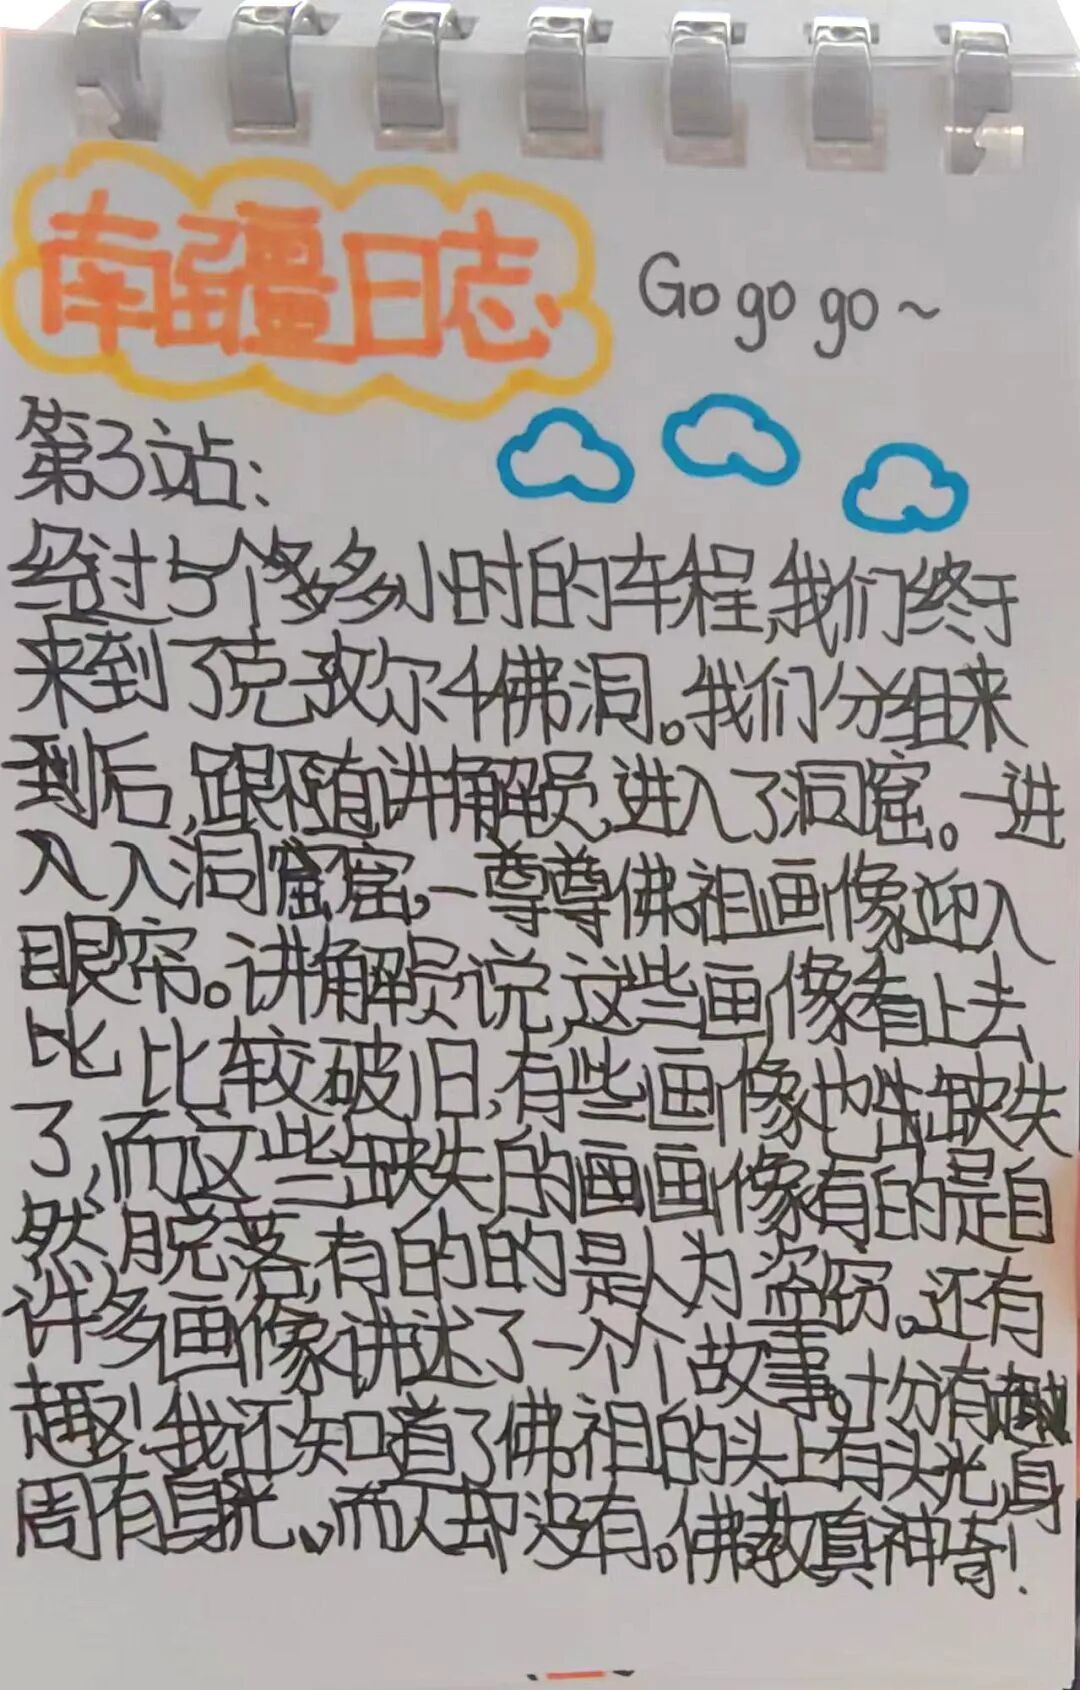 南疆日志
Go go go~
第3站:
经过5个多多小时的车程,我们终于
来到了克孜尔千佛洞。我们分组来
到后,跟随讲解员,进入了洞窟。一进
入入洞窟窟,一尊尊佛祖画像迎入
眼帘。讲解员说,这些画像看上去
比比较破旧,有些画像也缺失
了,而这些缺失的画画像有的是自
然脱落,有的的是人为盗窃。还有
许多画像讲述了一个个故事。十分有
趣!我还知道了佛祖的头上有头光,身
周有身光、而人却没有。佛教真神奇!